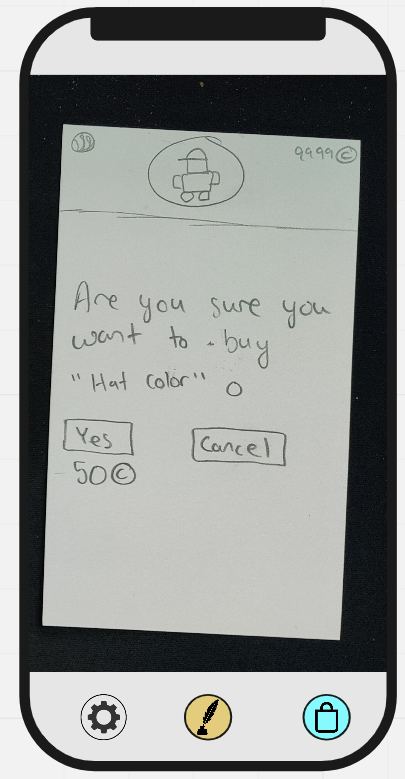 9999©
Are you sure you
want to buy
"Hat color"
Yes
Cancel
50©